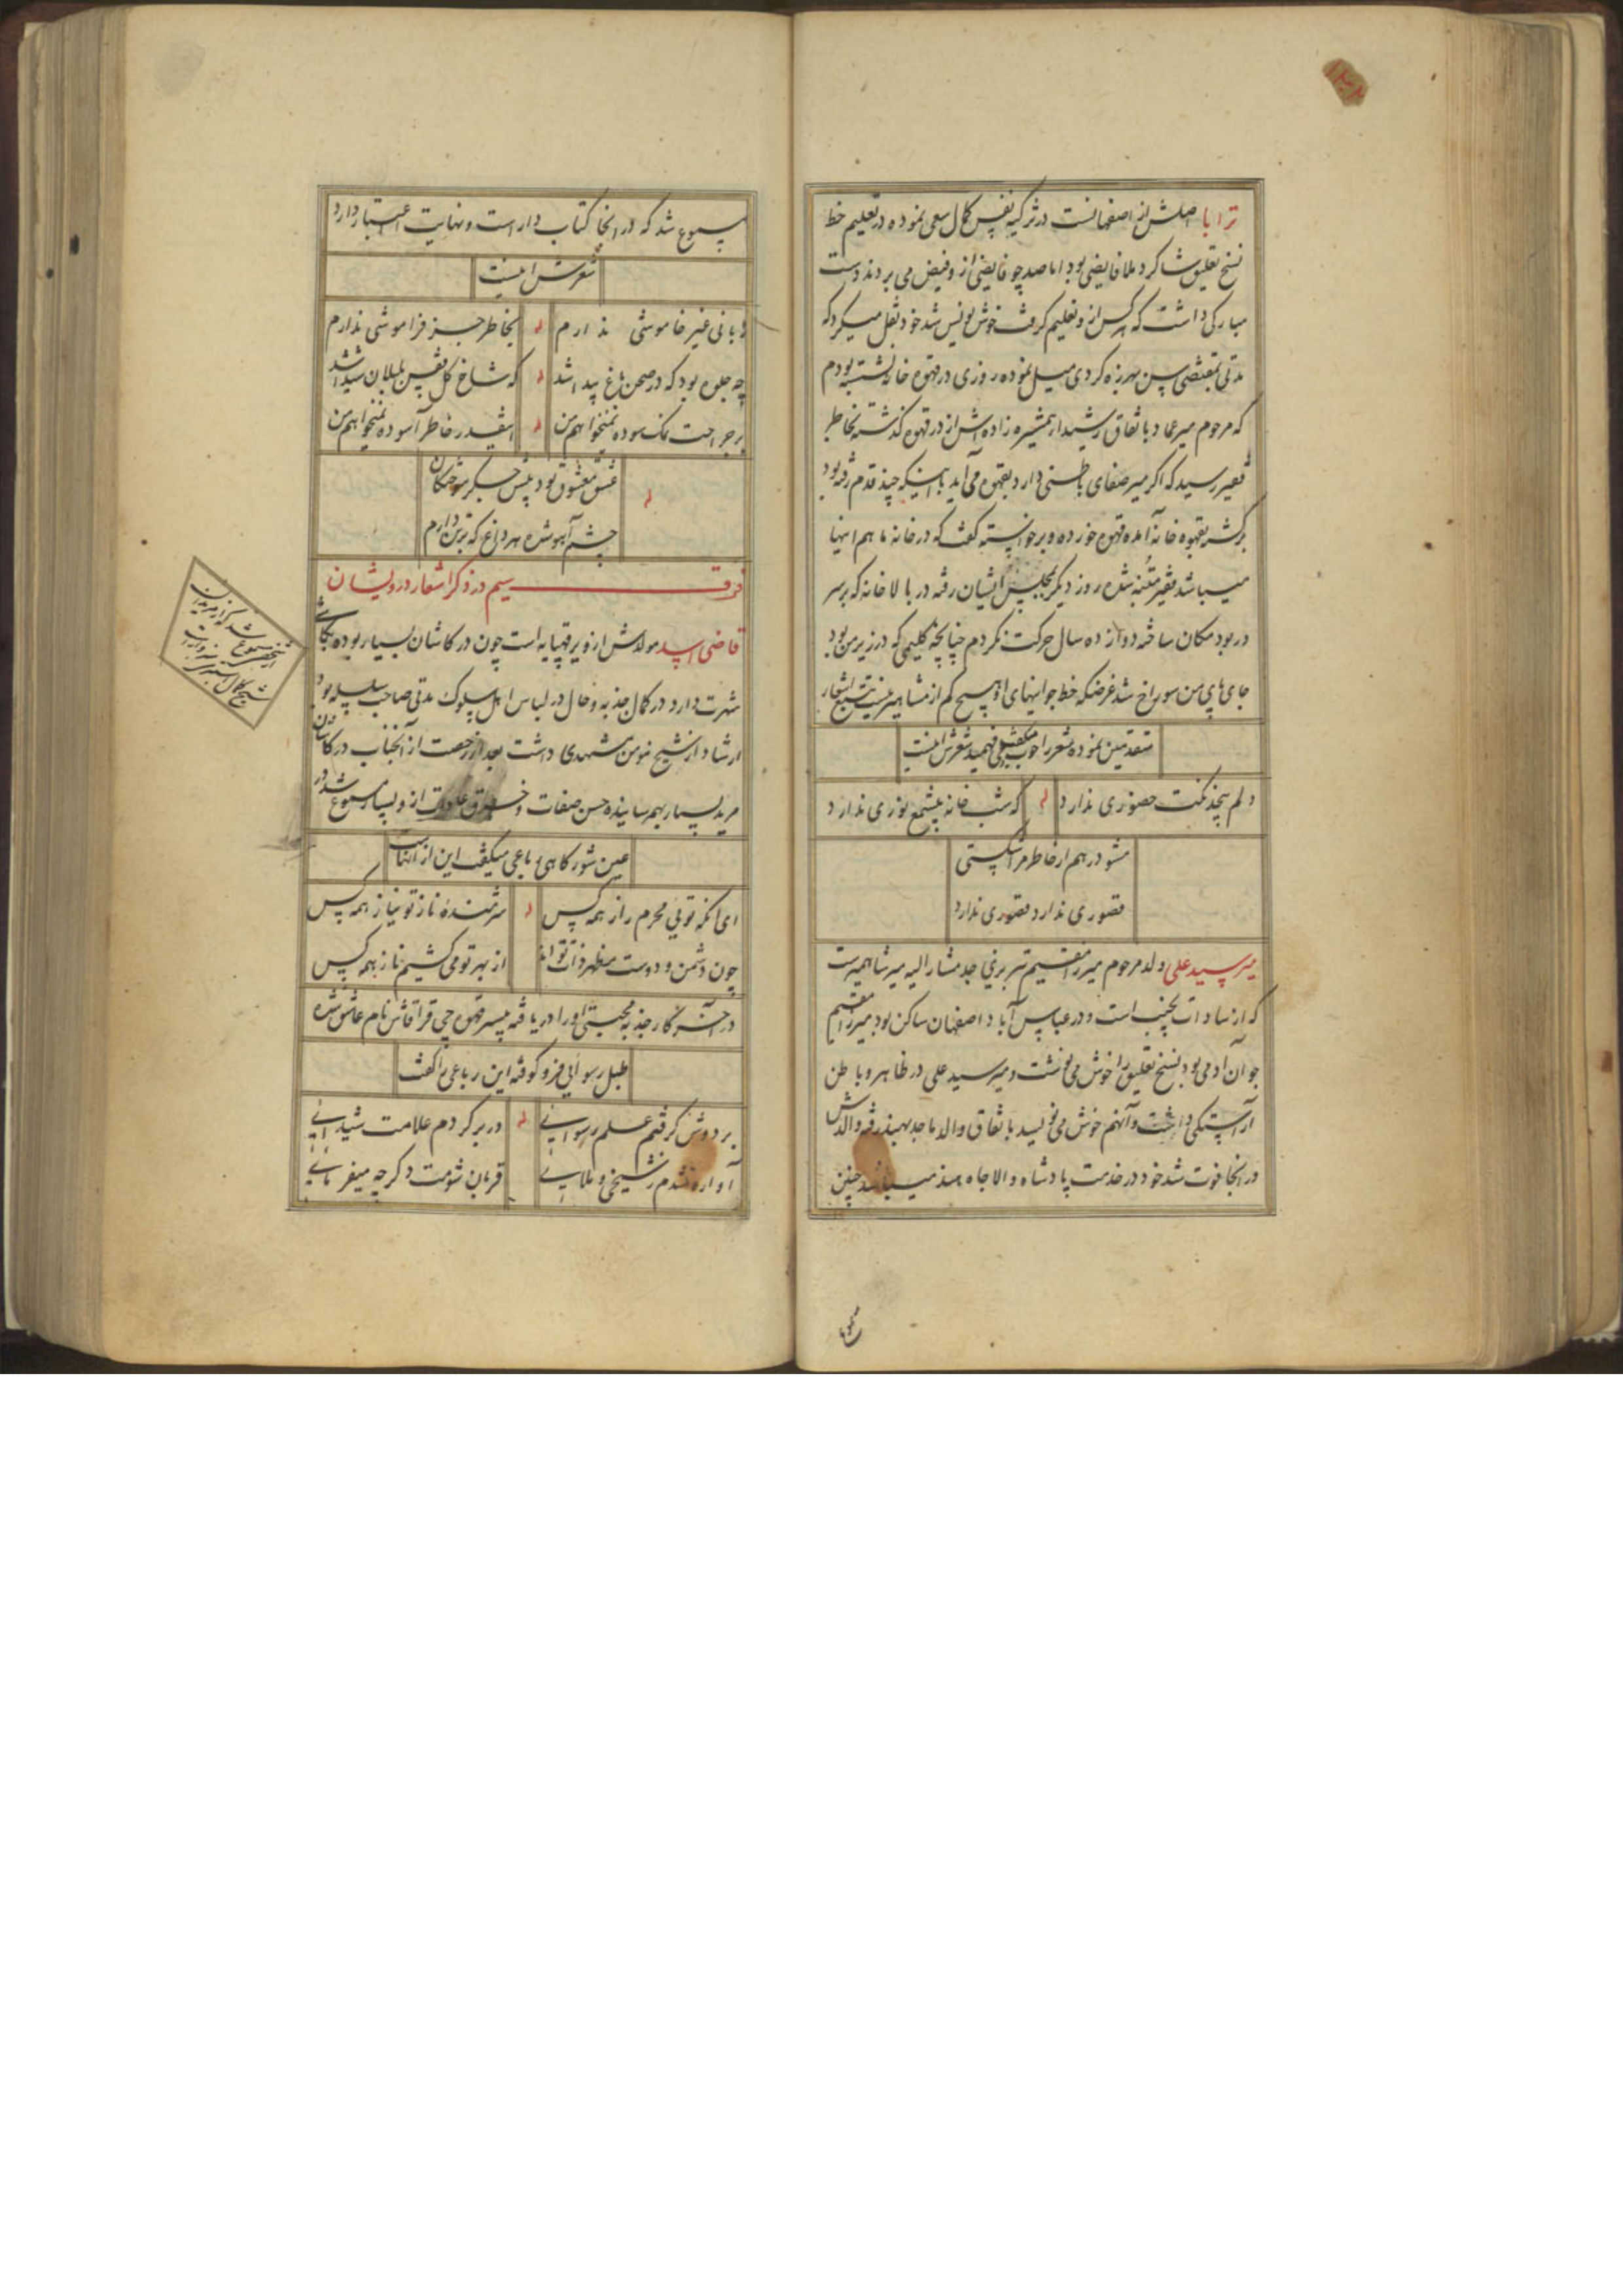 ترابا اصلش از اصفهانست در تزکیه نفس کمال سعی نموده در تعلیم خط
نسخ تعلیق شاگرد ملا فایضی بود اما صد چو فایضی از و فیض می بردند دست
مبارکی داشت که هر کس از و تعلیم گرفت خوش نویس شد خود نقل میکرد که
مدتی بمقتضی سن بهرزه کردی میل نموده روزی در قهوه خانه نشسته بودم
که مرحوم میر عماد باتفاق رشیدا همشیره زاده اش از در قهوه گذشته بخاطر
فقیر رسید که اگر میر صفای باطنی دارد بقهوه می آید باینکه چند قدم رفته بود
برگشته بقهوه خانه آمده قهوه خورده و برخواسته گفت که در خانه ما هم اینها
میباشد فقیر متنبه شده روز دیگر بمجلس ایشان رفته در بالا خانه که بر سر
در بود مکان ساخته دوازده سال حرکت نکردم چنانچه گلیمی که در زیر من بود
جای پای من سوراخ شد غرضکه خط جوانیهای او هیچ کم از مشاهیر نیست تتبع اشعار
متقدمین نموده شعر را خوب میگفت و میفهمید شعرش اینست
دلم بیخدمتت حضوری ندارد که شب خانه بیشمع نوری ندارد
مشو درهم ار خاطر مرا شکستی
قصوری ندارد قصوری ندارد
میر سید علی ولد مرحوم میرزا مقیم تبریزی جد مشار الیه میر شاهمیرست
که از سادات نجیب است و در عباس آباد اصفهان ساکن بود میرزا مقیم
جوان آدمی بود نسخ تعلیق را خوش می نوشت و میر سید علی در ظاهر و باطن
آراستگی داشت و آنهم خوش می نویسد باتفاق والد ماجد بهند رفته والدش
در انجا فوت شد خود در خدمت پادشاه والاجاه هند میباشد چنین
مسموع
مسموع شد که در انجا کتاب دار است و نهایت اعتبار دارد
شعرش اینست
زبانی غیر خاموشی ندارم بخاطر جز فراموشی ندارم
چه جلوه بود که در صحن باغ پیدا شد که شاخ گل قفس بلبلان شیدا شد
بر جراحت نمک سوده نمیخواهم من اینقدر خاطر آسوده نمیخواهم من
عشق معشوق بود پیش جگر سوختگان
چشم آهو شده هر داغ که بر تن دارم
فرقه سیم در ذکر اشعار درویشان
قاضی اسد مولدش از ویر قهپایه است چون در کاشان بسیار بوده بکاشی
شهرت دارد در کمال جذبه و حال در لباس اهل سلوک مدتی صاحب سلسله بود
ارشاد از شیخ مؤمن مشهدی داشت بعد از رخصت از آنجناب در کاشان
مرید بسیار بهم رسانیده حسن صفات و خوارق عادات از و بسیار مسموع شد در
عین شور گاهی رباعی میگفت این از آنهاست
ای آنکه تویی محرم راز همه کس شرمنده ناز تو نیاز همه کس
چون دشمن و دوست مظهر ذات تواند از بهر تو می کشیم ناز همه کس
در آخر کار جذبه محبتی او را دریافته پسر قهوه چی قراقاش نام عاشق شده
طبل رسوایی فرو کوفته این رباعی را گفت
بر دوش گرفتم علم رسوایی در بر کردم علامت شیدایی
آواره شدم ز شیخی و ملایی قربان شومت دگر چه میفرمایی